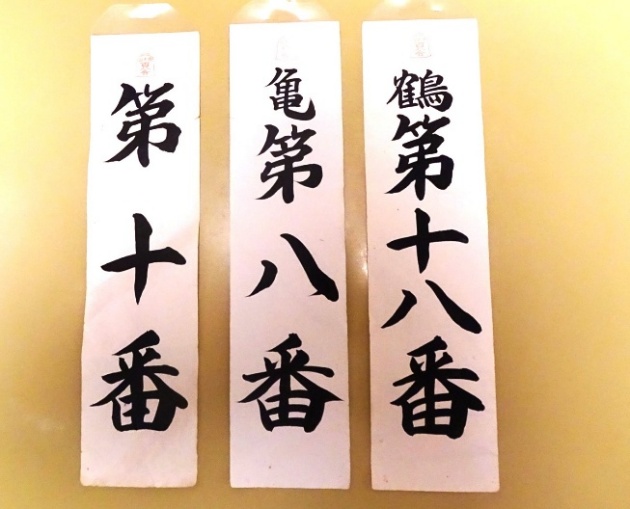 鶴第十八番
亀第八番
第十番